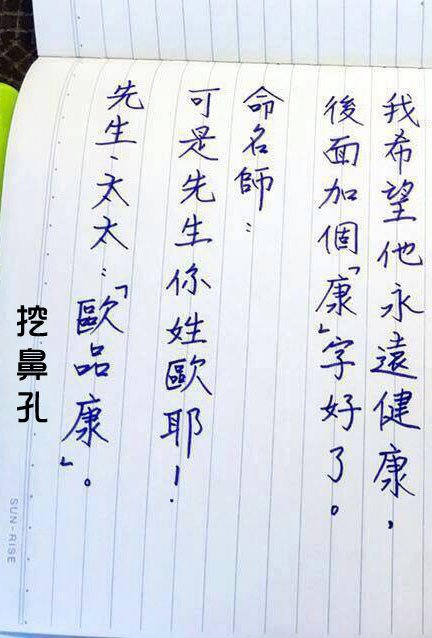 我希望他永遠健康，
後面加個「康」字好了。
命名師：
可是先生你姓歐耶！
先生、太太：「歐品康」。
挖鼻孔
SUN-RISE